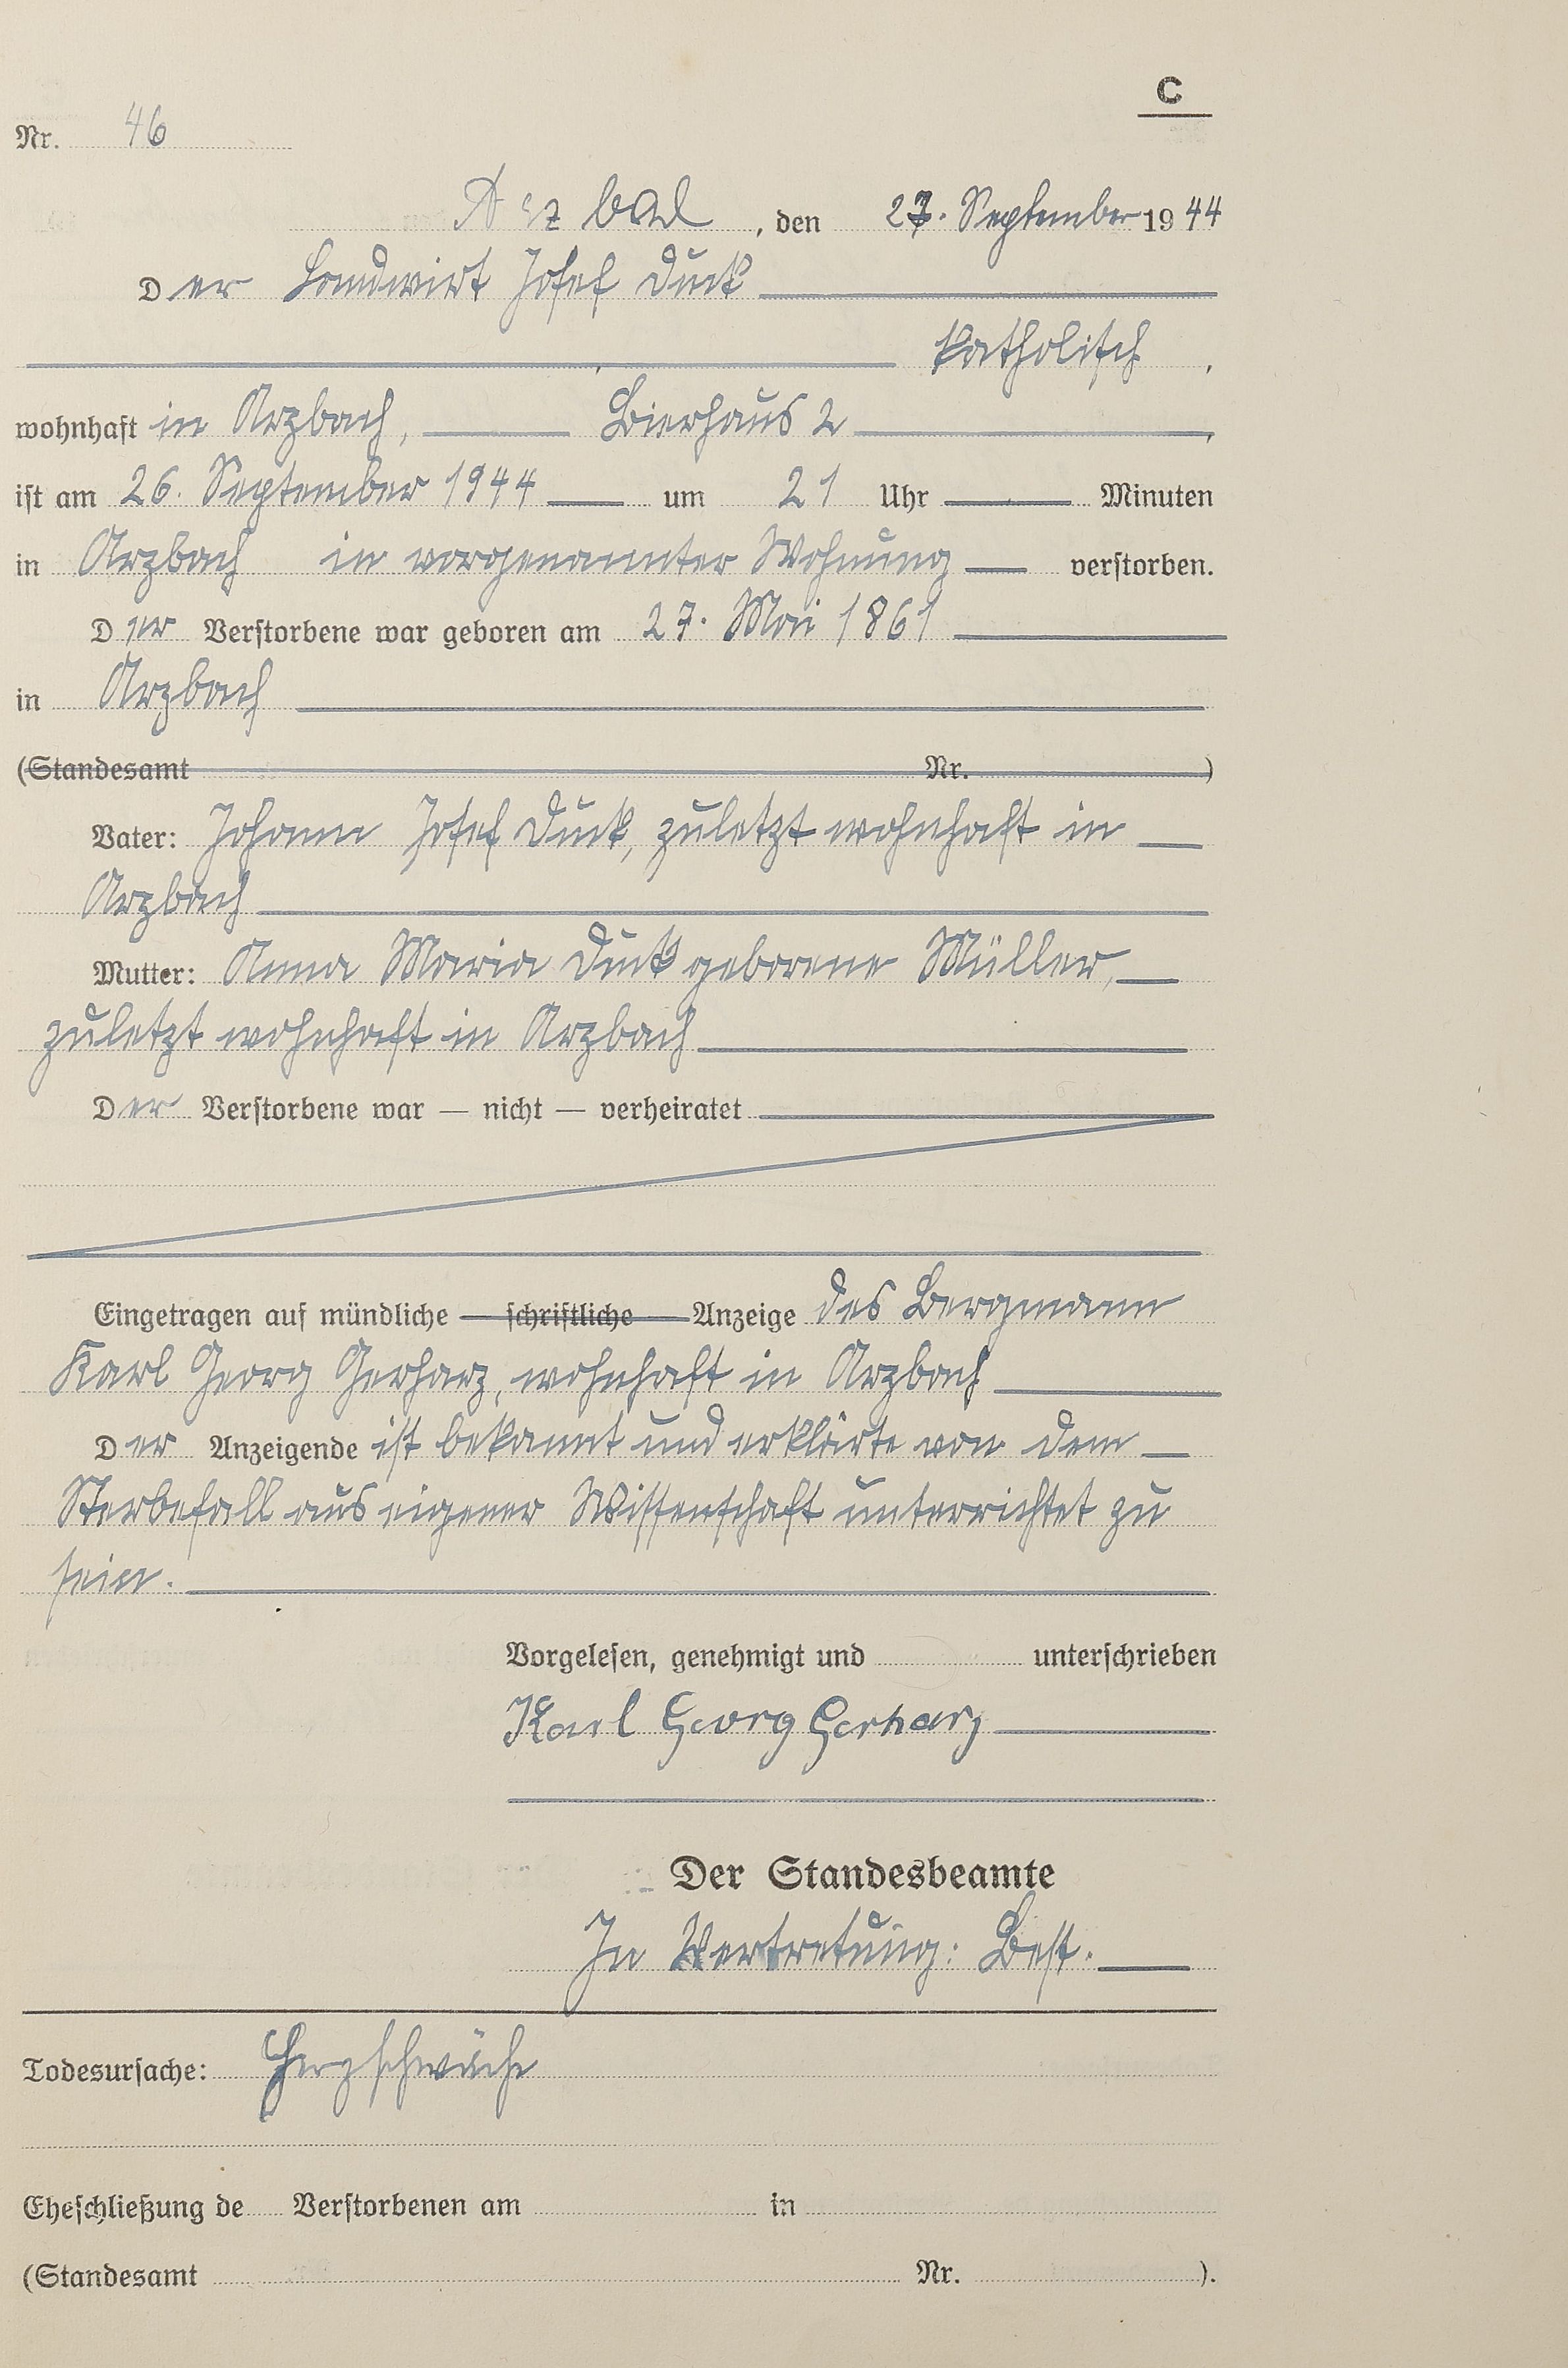 C
Nr. 46
Arzbach, den 27. September 1944
Der Landwirt Josef Duck
katholisch,
wohnhaft in Arzbach, Bierhaus 2,
ist am 26. September 1944 um 21 Uhr Minuten
in Arzbach in vorgenannter Wohnung verstorben.
Der Verstorbene war geboren am 27. Mai 1861
in Arzbach
(Standesamt Nr. )
Vater: Johann Josef Duck, zuletzt wohnhaft in
Arzbach
Mutter: Anna Maria Duck geborene Müller,
zuletzt wohnhaft in Arzbach
Der Verstorbene war — nicht — verheiratet
Eingetragen auf mündliche — schriftliche — Anzeige des Bergmann
Karl Georg Gerharz, wohnhaft in Arzbach
Der Anzeigende ist bekannt und erklärte von dem
Sterbefall aus eigener Wissenschaft unterrichtet zu
sein.
Vorgelesen, genehmigt und unterschrieben
Karl Georg Gerharz
Der Standesbeamte
In Vertretung: Best.
Todesursache: Herzschwäche
Eheschließung de Verstorbenen am in
(Standesamt Nr. ).